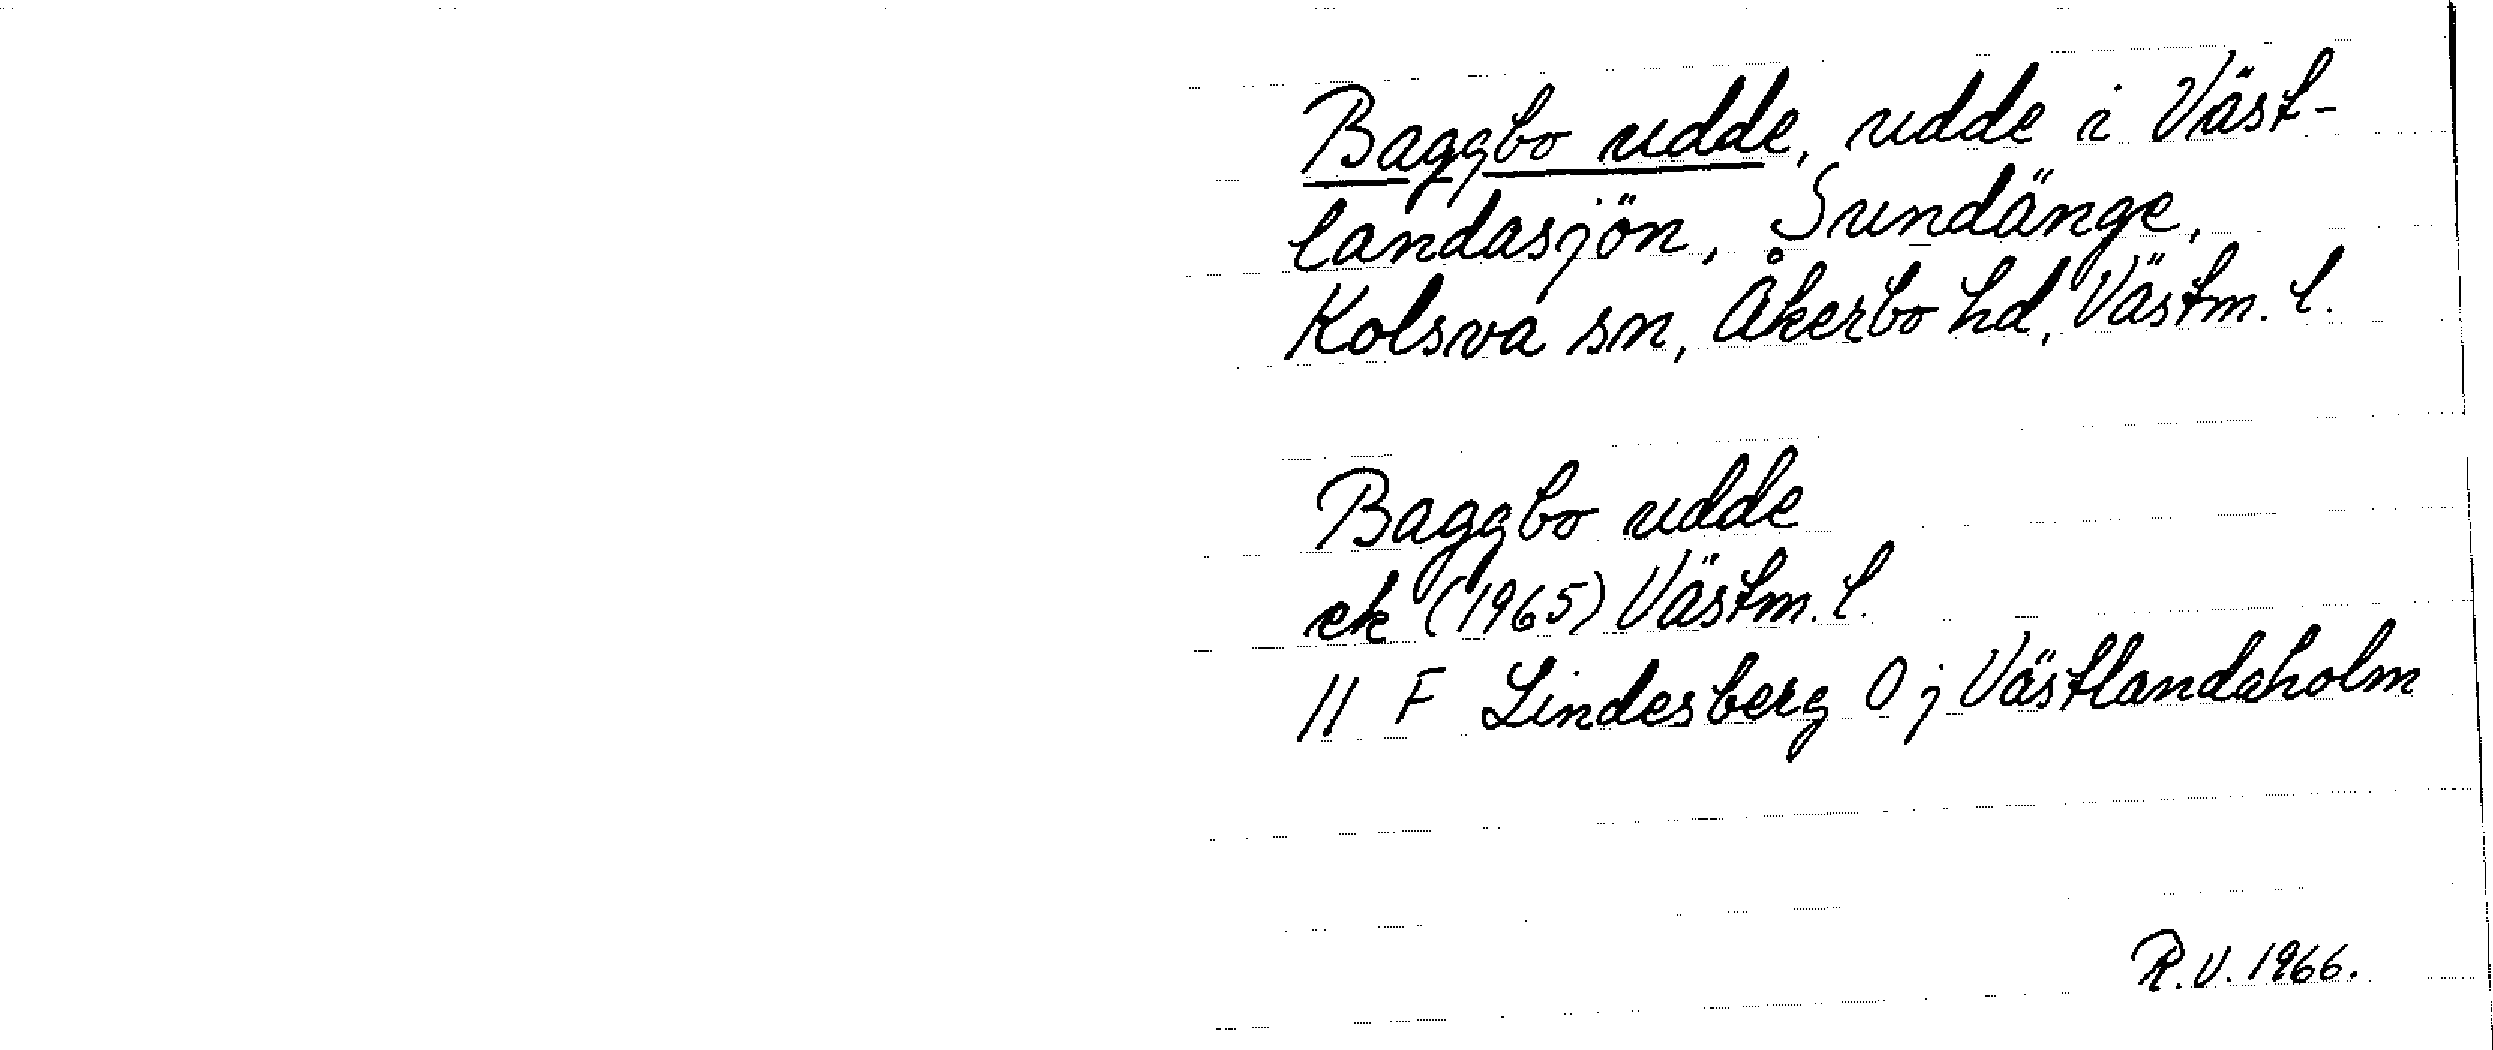 Baggbo udde, udde i Väst-
landasjön, Sundänge,
Kolsva sn, Åkerbo hd, Västm. l.
Baggbo udde
ek (1965) Västm. l.
11 F Lindesberg O j Västlandaholm
R.V. 1966.